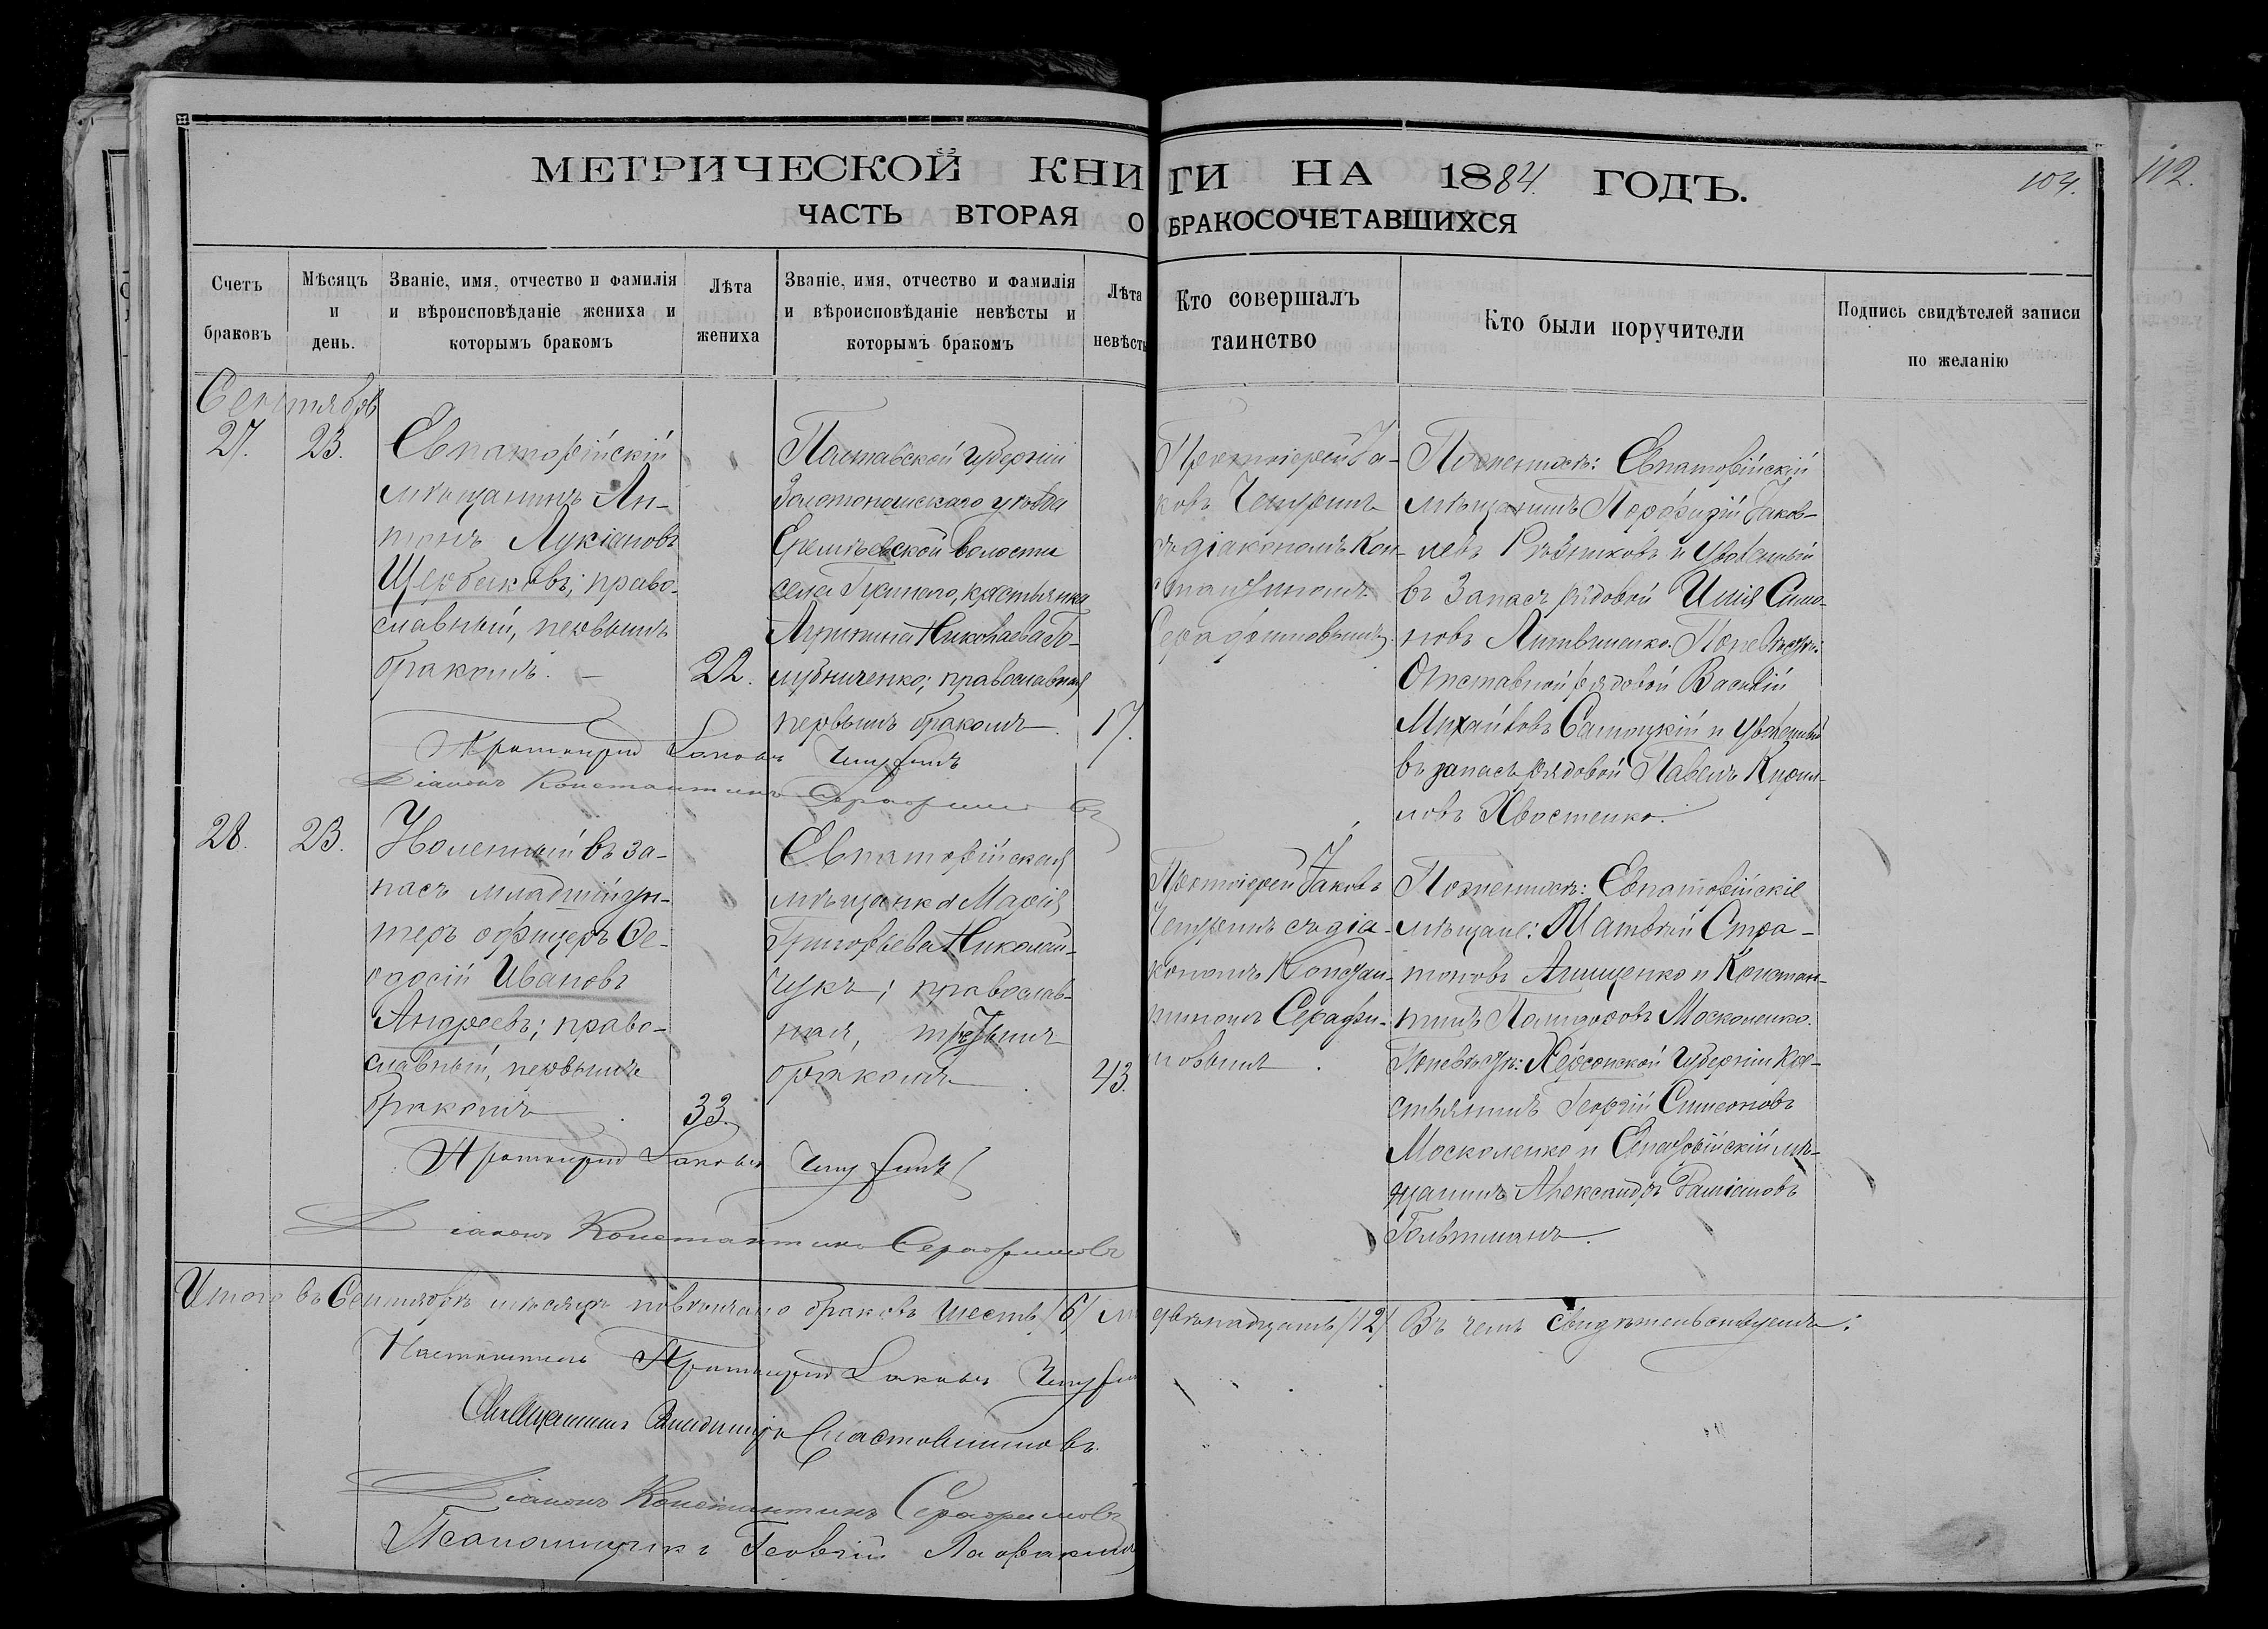 МЕТРИЧЕСКОЙ КНИГИ НА 1884 ГОДЪ.
104.
112.
ЧАСТЬ ВТОРАЯ О БРАКОСОЧЕТАВШИХСЯ
Счетъ браковъ
Мѣсяцъ и день.
Званіе, имя, отчество и фамилія и вѣроисповѣданіе жениха и которымъ бракомъ
Лѣта жениха
Званіе, имя, отчество и фамилія и вѣроисповѣданіе невѣсты и которымъ бракомъ
Лѣта невѣсты
Кто совершалъ таинство
Кто были поручители
Подпись свидѣтелей записи по желанію
Сентябрь
27.
23.
Евпаторійскій
мѣщанинъ Ан-
тонъ Лукіановъ
Щербаковъ; право-
славный, первымъ
бракомъ. —
22.
Полтавской Губерніи
Золотоношскаго уѣзда
Еремѣевской волости
села , крестьянка
Агрипина Николаева Го-
лубниченко; православная
первымъ бракомъ.
17.
Протоіерей Іа-
ковъ Чепуринъ
съ діакономъ Кон-
стантиномъ
Серафимовымъ.
По женихѣ: Евпаторійскій
мѣщанинъ Порфирій Іаков-
левъ Рѣзниковъ и Уволенный
въ Запасъ рядовой Илія Симо-
новъ Литвиненко. По невѣстѣ:
Отставной рядовой Василій
Михайловъ и Уволенный
въ запасъ рядовой Павелъ Кирил-
ловъ Хвостенко.
Протоіерей Іаковъ Чепуринъ
Діаконъ Константинъ Серафимовъ
28.
23.
Уволенный въ за-
пасъ младшій ун-
теръ офицеръ Ѳе-
одосій Ивановъ
Андреевъ; право-
славный, первымъ
бракомъ.
33.
Евпаторійская
мѣщанка Марія
Григорьева Николай-
чукъ; православ-
ная, третьимъ
бракомъ.
43.
Протоіерей Іаковъ
Чепуринъ съ діа-
кономъ Констан-
тиномъ Серафи-
мовымъ.
По женихѣ: Евпаторійскіе
мѣщане: Матвѣй Стра-
тоновъ Анищенко и Констан-
тинъ Полидоровъ Москаленко.
По невѣстѣ: Херсонской Губерніи Кре-
стьянинъ Георгій Симеоновъ
Москаленко и Евпаторійскій мѣ-
щанинъ Александръ
Гольтманъ.
Протоіерей Іаковъ Чепуринъ
Діаконъ Константинъ Серафимовъ
Итого въ Сентябрѣ мѣсяцѣ повѣнчано браковъ шесть /6/ двѣнадцать /12/ Въ чемъ свидѣтельствуемъ:
Настоятель Протоіерей Іаковъ Чепуринъ
Священникъ Владиміръ Сластовниковъ
Діаконъ Константинъ Серафимовъ
Псаломщикъ Георгій